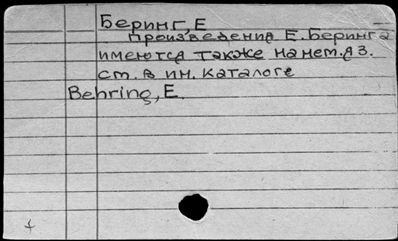 Беринг, Е
Произведения Е. Беринга
имеются также на нем. яз.
ст. в ин. каталоге
Behring, E.